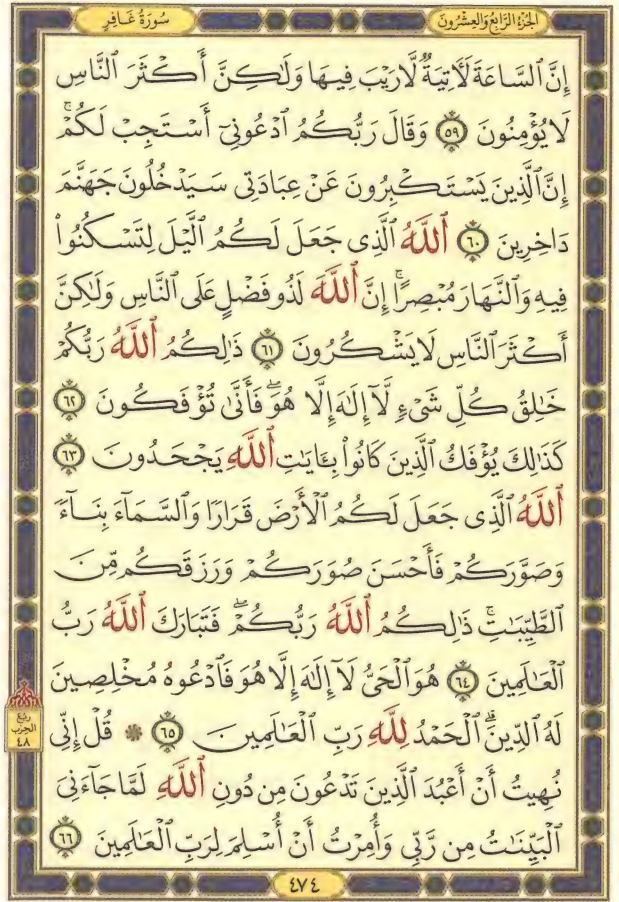 الجزء الرابع والعشرون
سورة غافر
إِنَّ ٱلسَّاعَةَ لَأَتِيَةٌ لَّا رَيْبَ فِيهَا وَلَٰكِنَّ أَكْثَرَ ٱلنَّاسِ
لَا يُؤْمِنُونَ ٥٩ وَقَالَ رَبُّكُمُ ٱدْعُونِيٓ أَسْتَجِبْ لَكُمْۚ
إِنَّ ٱلَّذِينَ يَسْتَكْبِرُونَ عَنْ عِبَادَتِى سَيَدْخُلُونَ جَهَنَّمَ
دَاخِرِينَ ٦٠ ٱللَّهُ ٱلَّذِى جَعَلَ لَكُمُ ٱلَّيْلَ لِتَسْكُنُوا۟
فِيهِ وَٱلنَّهَارَ مُبْصِرًاۚ إِنَّ ٱللَّهَ لَذُو فَضْلٍ عَلَى ٱلنَّاسِ وَلَٰكِنَّ
أَكْثَرَ ٱلنَّاسِ لَا يَشْكُرُونَ ٦١ ذَٰلِكُمُ ٱللَّهُ رَبُّكُمْ
خَٰلِقُ كُلِّ شَىْءٍ لَّآ إِلَٰهَ إِلَّا هُوَۖ فَأَنَّىٰ تُؤْفَكُونَ ٦٢
كَذَٰلِكَ يُؤْفَكُ ٱلَّذِينَ كَانُوا۟ بِـَٔايَٰتِ ٱللَّهِ يَجْحَدُونَ ٦٣
ٱللَّهُ ٱلَّذِى جَعَلَ لَكُمُ ٱلْأَرْضَ قَرَارًا وَٱلسَّمَآءَ بِنَآءً
وَصَوَّرَكُمْ فَأَحْسَنَ صُوَرَكُمْ وَرَزَقَكُم مِّنَ
ٱلطَّيِّبَٰتِۚ ذَٰلِكُمُ ٱللَّهُ رَبُّكُمْۖ فَتَبَارَكَ ٱللَّهُ رَبُّ
ٱلْعَٰلَمِينَ ٦٤ هُوَ ٱلْحَىُّ لَآ إِلَٰهَ إِلَّا هُوَ فَٱدْعُوهُ مُخْلِصِينَ
لَهُ ٱلدِّينَۗ ٱلْحَمْدُ لِلَّهِ رَبِّ ٱلْعَٰلَمِينَ ٦٥ ۞ قُلْ إِنِّى
نُهِيتُ أَنْ أَعْبُدَ ٱلَّذِينَ تَدْعُونَ مِن دُونِ ٱللَّهِ لَمَّا جَآءَنِىَ
ٱلْبَيِّنَٰتُ مِن رَّبِّى وَأُمِرْتُ أَنْ أُسْلِمَ لِرَبِّ ٱلْعَٰلَمِينَ ٦٦
ربع
الحزب
٤٨
٤٧٤